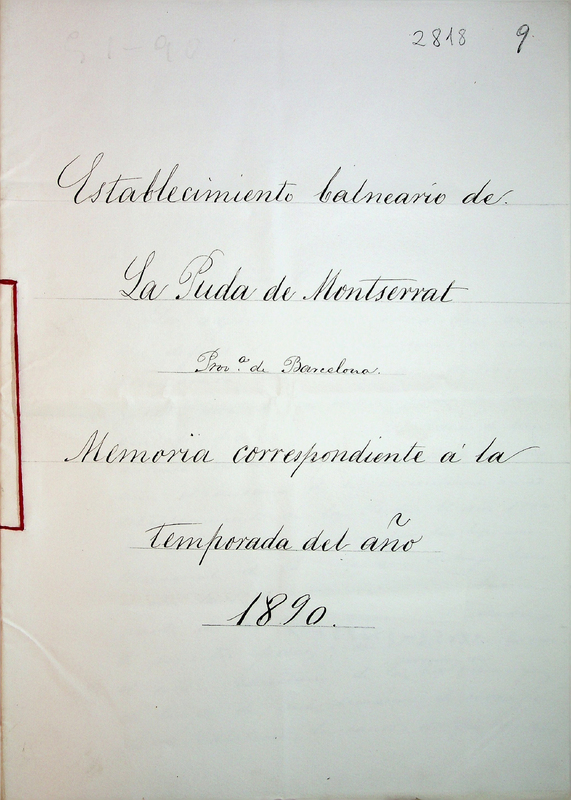 2818 9.
Establecimiento balneario de.
La Puda de Montserrat
Prov.ª de Barcelona.
Memoria correspondiente á la
temporada del año
1890.